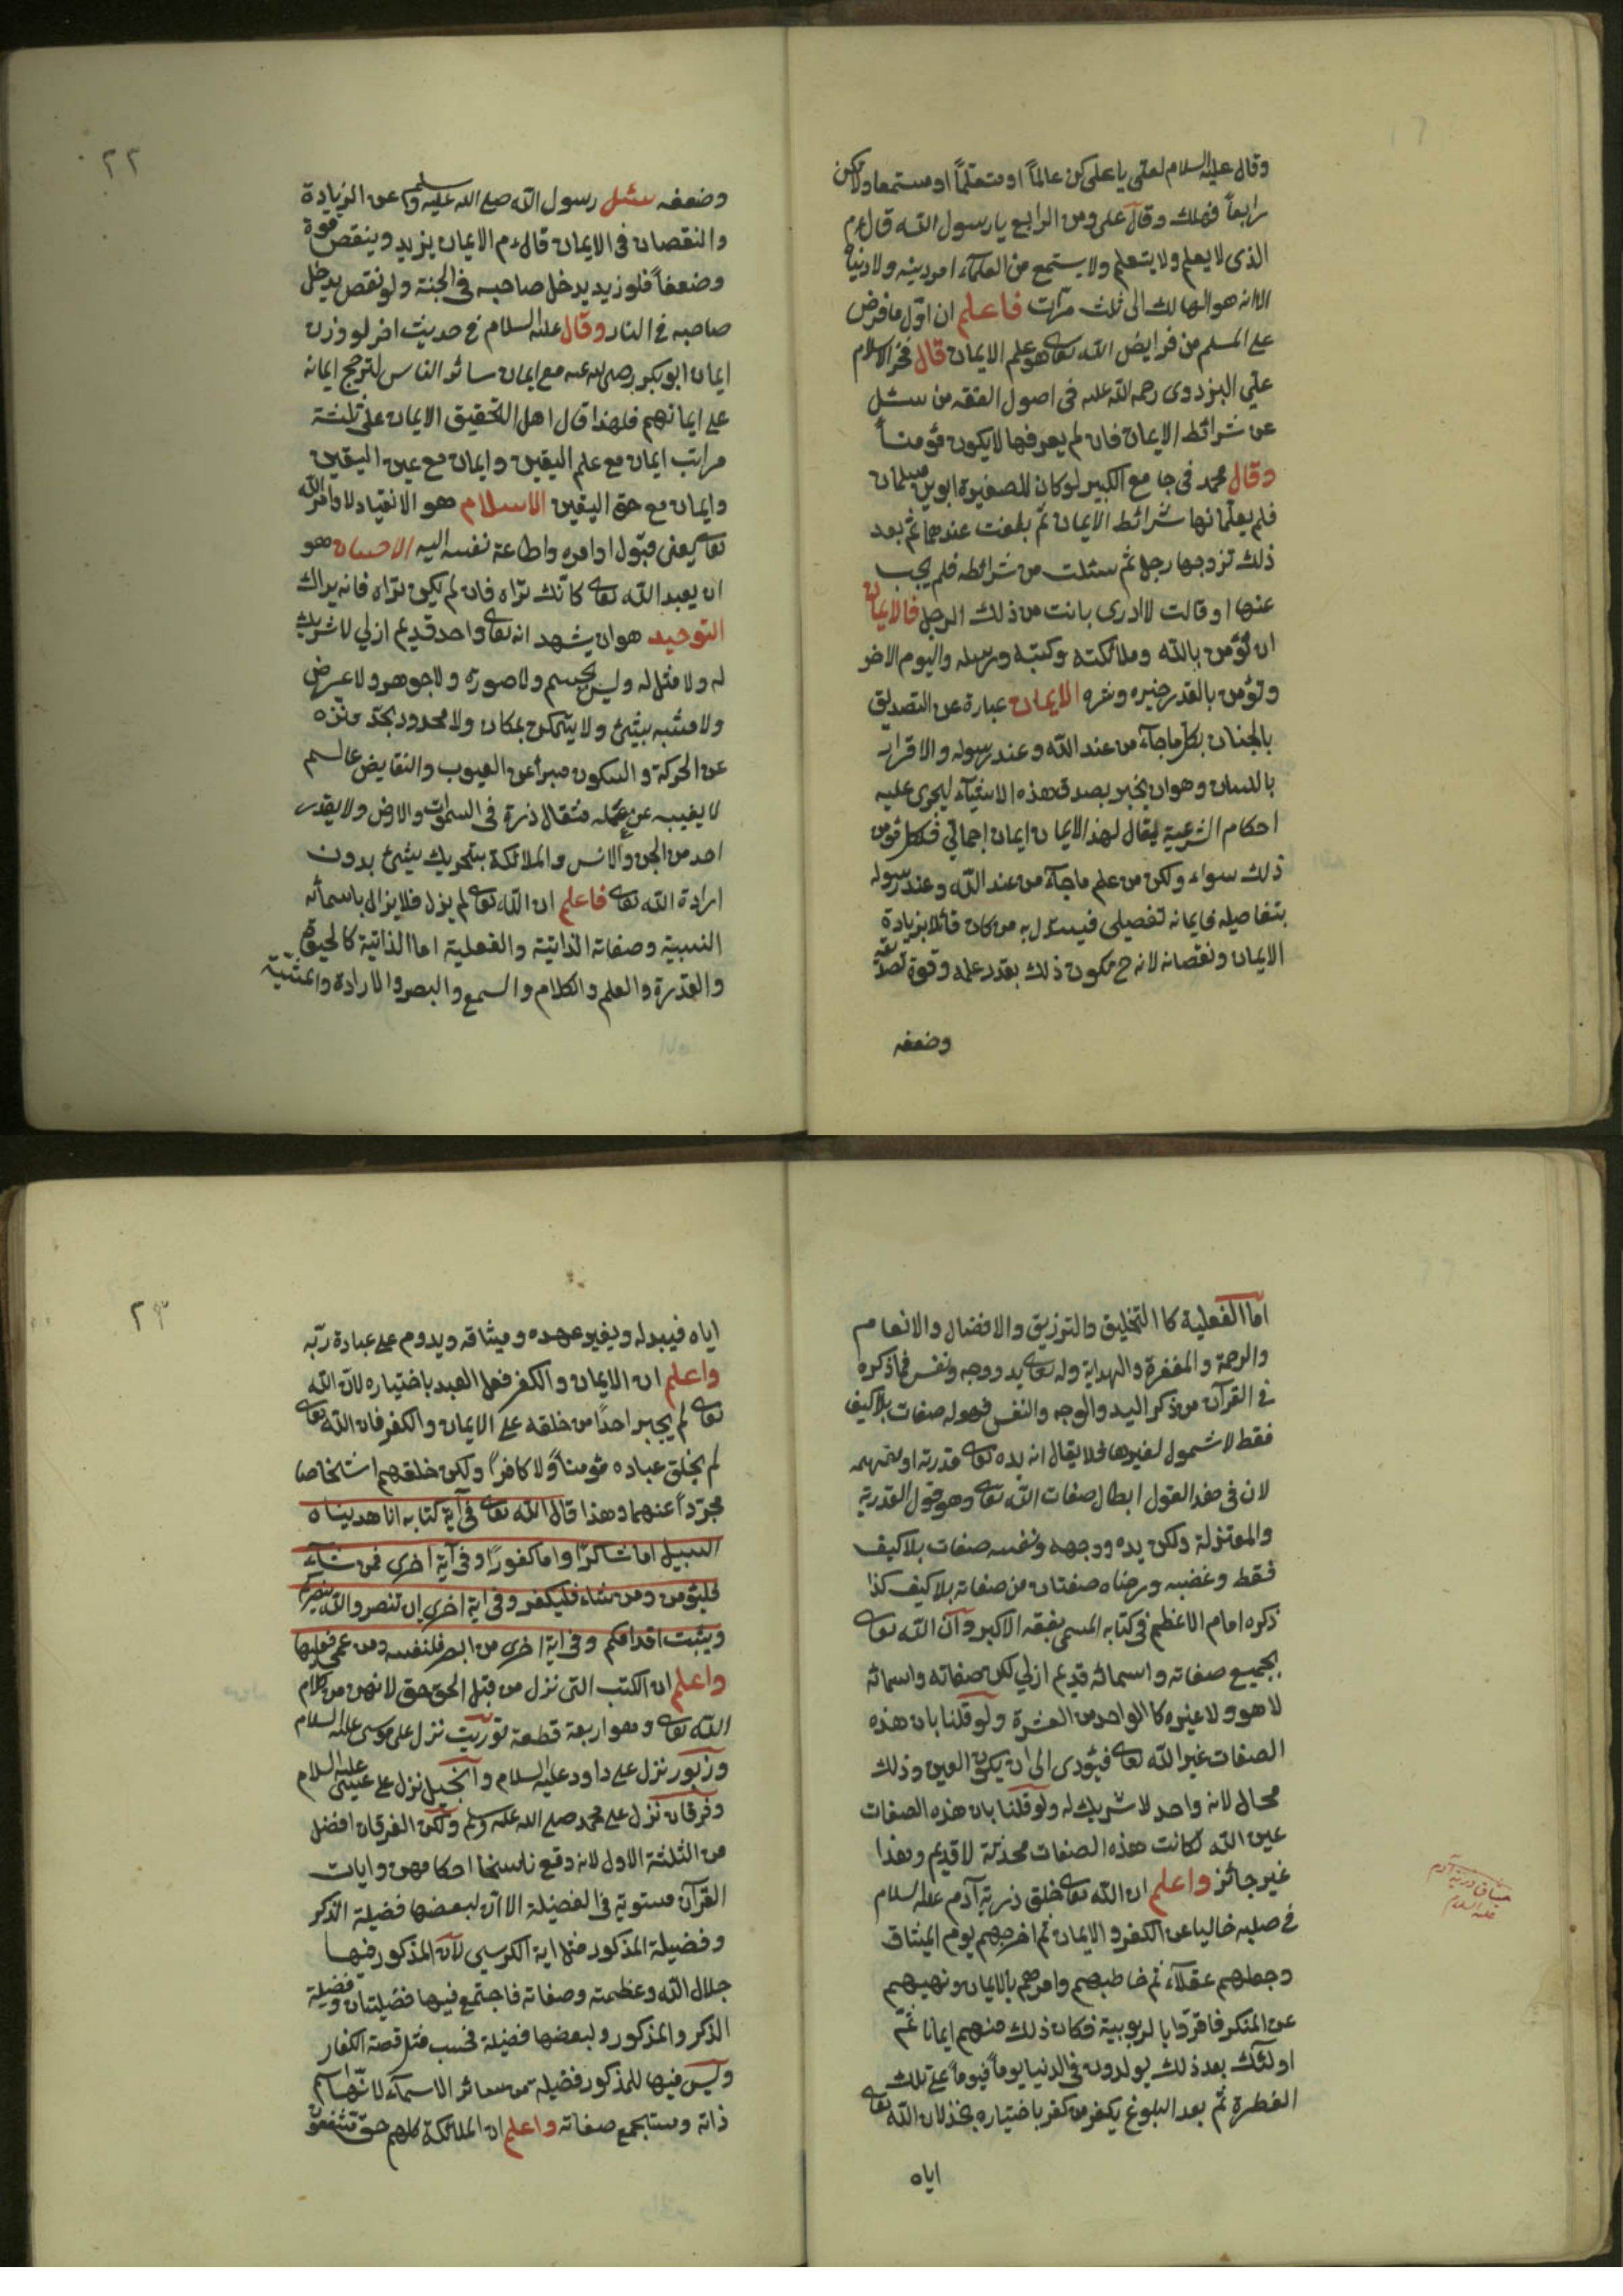 وقال عليه السلام لعلي يا علي كن عالماً او متعلماً او مستمعا ولا تكن
رابعاً فتهلك وقال علي ومن الرابع يا رسول الله قال عم
الذى لا يعلم ولا يتعلم ولا يستمع من العلمآء امر دينه ولا دنياه
الا انه هو الهالك الى ثلث مرّات فاعلم ان اوّل ما فرض
على المسلم من فرايض الله تعالى هو علم الايمان قال فخر الاسلام
علي البزدوى رحمه الله عليه فى اصول الفقه من سئل
عن شرائط الايمان فان لم يعرفها لا يكون مؤمناً
وقال محمد فى جامع الكبير لو كان للصغيرة ابوين مسلمان
فلم يعلّمانها شرائط الايمان ثمّ بلغت عندهما ثم بعد
ذلك تزوجها رجل ثم سئلت من شرائطه فلم يجب
عنها او قالت لا ادرى بانت من ذلك الرجل فالايمان
ان تؤمن بالله وملائكته وكتبه ورسله واليوم الاخر
وتؤمن بالقدر خيره وشره الايمان عبارة عن التصديق
بالجنان بكل ما جآء من عند الله وعند رسوله والاقرار
باللسان وهو ان يخبر بصدق هذه الاشيآء ليجرى عليه
احكام الشرعية يقال لهذا الايمان ايمان اجمالي فكل مؤمن
ذلك سواء ولكن من علم ما جآء من عند الله وعند رسوله
بتفاصيله فايمانه تفصيلى فيستدل به من كان قائلا بزيادة
الايمان ونقصانه لانه ح يكون ذلك بقدر علمه وقوة تصديقه
وضعفه
٢٢
وضعفه سئل رسول الله صلى الله عليه وسلم عن الزيادة
والنقصان فى الايمان قال عم الايمان يزيد وينقص قوة
وضعفاً فلو زيد يدخل صاحبه فى الجنة ولو نقص يدخل
صاحبه فى النار وقال عليه السلام فى حديث اخر لو وزن
ايمان ابو بكر رضى الله عنه مع ايمان سائر الناس لترجح ايمانه
على ايمانهم فلهذا قال اهل التحقيق الايمان على ثلثة
مراتب ايمان مع علم اليقين وايمان مع عين اليقين
وايمان مع حق اليقين الاسلام هو الانقياد لاوامر الله
تعالى يعنى قبول اوامره واطاعة نفسه اليه الاحسان هو
ان يعبد الله تعالى كانك تراه فان لم يكن تراه فانه يراك
التوحيد هو ان يشهد انه تعالى واحد قديم ازلي لا شريك
له ولا مثل له وليس بجسم ولا صورة ولا جوهر ولا عرض
ولا مشبه بشئ ولا يتمكن بمكان ولا محدود بحد منزه
عن الحركة والسكون مبرأ عن العيوب والنقايض عالم
لا يغيب عن علمه مثقال ذرة فى السموات والارض ولا يقدر
احد من الجن والانس والملائكة بتحريك شئ بدون
ارادة الله تعالى فاعلم ان الله تعالى لم يزل فلا يزال باسمائه
النسبية وصفاته الذاتية والفعلية اما الذاتية كالحيوة
والقدرة والعلم والكلام والسمع والبصر والارادة والمشية
اما الفعلية كا التخليق والترزيق والافضال والانعام
والرحمة والمغفرة والهداية وله تعالى يد ووجه ونفس فما ذكره
فى القرآن من ذكر اليد والوجه والنفس فهو له صفات بلا كيف
فقط لا شمول لغيرها فلا يقال انه يده تعالى قدرته او نعمته
لان فى هذ القول ابطال صفات الله تعالى وهو قول القدرية
والمعتزلة ولكن يده ووجهه ونفسه صفات بلا كيف
فقط وغضبه ورضاه صفتان من صفاته بلا كيف كذا
ذكره امام الاعظم فى كتابه المسمى بفقه الاكبر وان الله تعالى
بجميع صفاته واسمائه قديم ازلي لكن صفاته واسمائه
لا هو ولا غيره كا الواحد من العشرة ولو قلنا بان هذه
الصفات غير الله تعالى فيؤدى الى ان يكون العين وذلك
محال لانه واحد لا شريك له ولو قلنا بان هذه الصفات
عين الله لكانت هذه الصفات محدثة لا قديم وهذا
غير جائز واعلم ان الله تعالى خلق ذرية آدم عليه السلام
فى صلبه خاليا عن الكفر والايمان ثم اخرجهم يوم الميثاق
وجعلهم عقلاء ثم خاطبهم وامرهم بالايمان ونهيهم
عن المنكر فاقرّوا بالربوبية فكان ذلك منهم ايمانا ثمّ
اولئك بعد ذلك يولدون فى الدنيا يوماً فيوماً على تلك
الفطرة ثم بعد البلوغ يكفر من كفر باختياره بخذلان الله تعالى
اياه
ميثاق ذرية آدم
عليه السلام
٢٣
اياه فيبدله ويغير عهده وميثاقه ويدوم على عبادة ربّه
واعلم ان الايمان والكفر فعل العبد باختياره لان الله
تعالى لم يجبر احداً من خلقه على الايمان والكفر فان الله تعالى
لم يخلق عباده مؤمناً ولا كافراً ولكن خلقهم اشخاصا
مجرّداً عنهما وهذا قال الله تعالى فى آية كتابه انا هديناه
السبيل اما شاكرًا واما كفورًا وفى آية اخرى فمن شآء
فليؤمن ومن شاء فليكفر وفى اية اخرى ان تنصروا الله ينصركم
ويثبت اقدامكم وفى اية اخرى من ابصر فلنفسه ومن عمى فعليها
واعلم ان الكتب التى نزل من قبل الحق حق لانهن من كلام
الله تعالى وهو اربعة قطعة توريت نزل على موسى عليه السلام
وزبور نزل على داود عليه السلام وانجيل نزل على عيسى عليه السلام
وفرقان نزل على محمد صلى الله عليه وسلم ولكن الفرقان افضل
من الثلثة الاول لانه وقع ناسخا احكامهن وايات
القرآن مستوية فى الفضيلة الا ان لبعضها فضيلة الذكر
وفضيلة المذكور مثل اية الكرسي لان المذكور فيها
جلال الله وعظمته وصفاته فاجتمع فيها فضيلتان وفضيلة
الذكر والمذكور ولبعضها فضيلة فحسب مثل قصة الكفار
وليس فيها للمذكور فضيلة من سائر الاسمآء لانها اسم
ذاته ومستجمع صفاته واعلم ان الملائكة كلهم حق